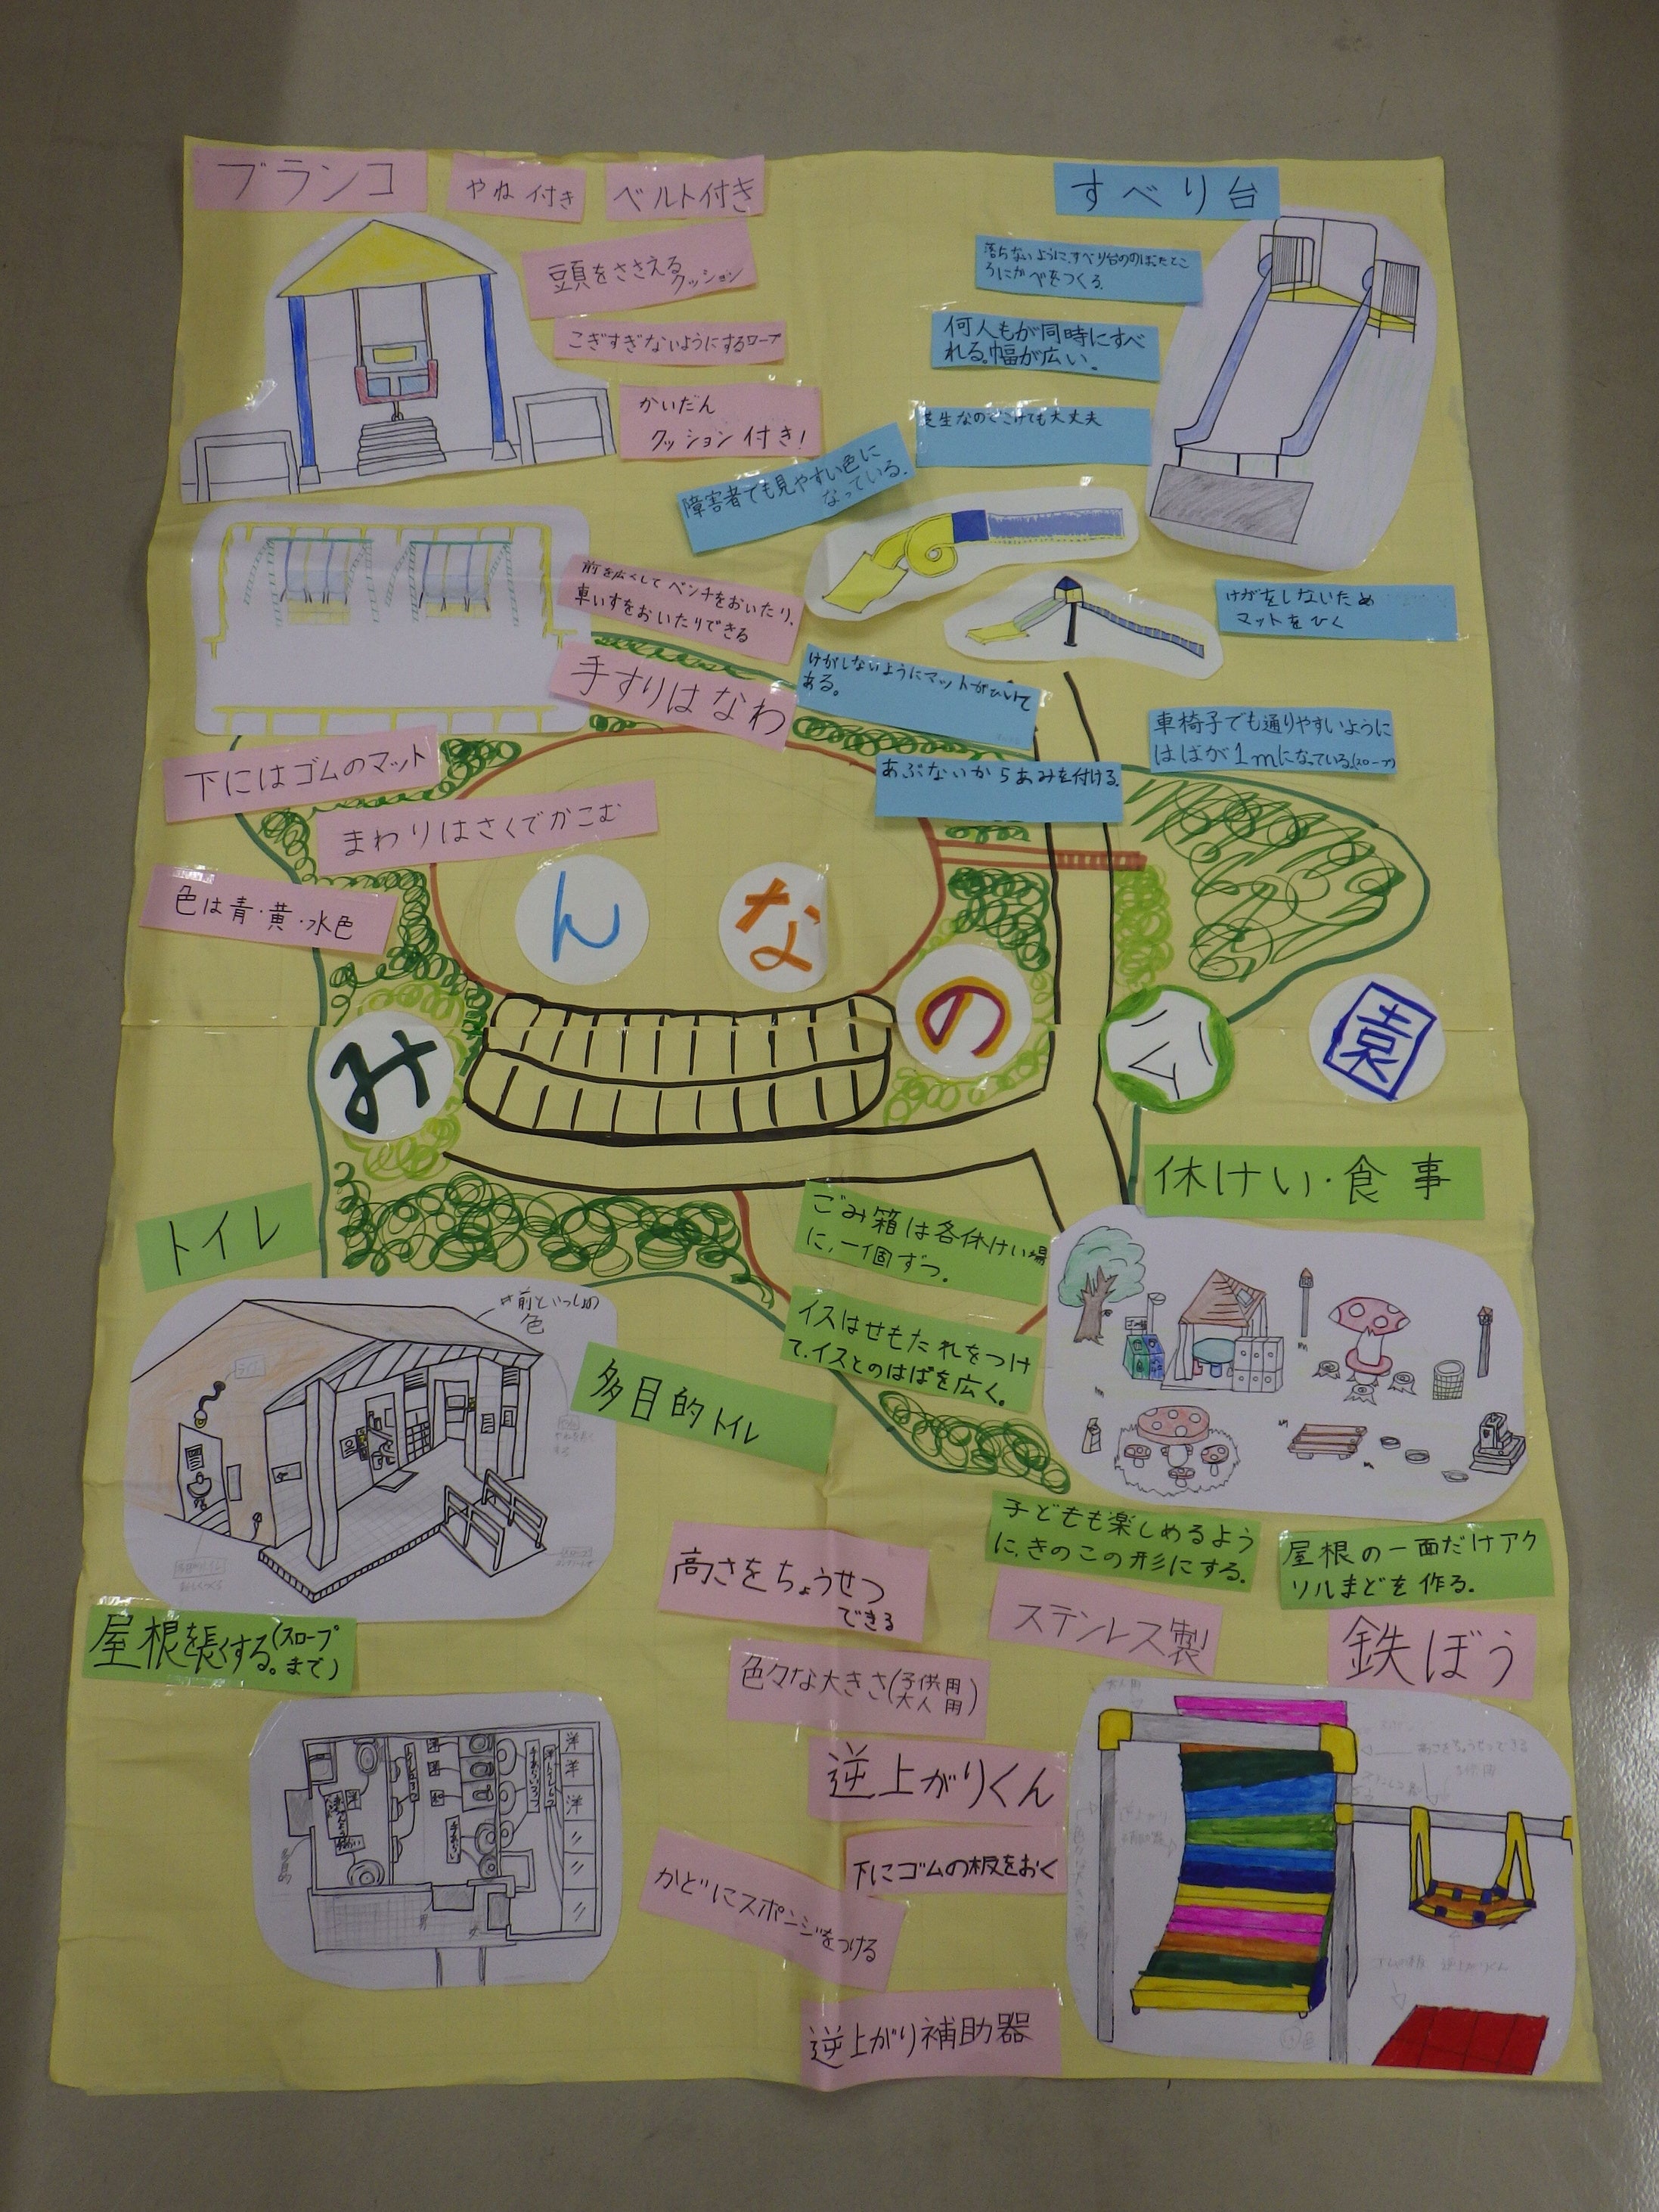 ブランコ
やね付き
ベルト付き
頭をささえる
クッション
こぎすぎないようにするロープ
かいだん
クッション付き!
前を広くしてベンチをおいたり、
車いすをおいたりできる
手すりはなわ
下にはゴムのマット
まわりはさくでかこむ
色は青・黄・水色
すべり台
落ちないように、すべり台ののぼったとこ
ろにかべをつくる。
何人もが同時にすべ
れる。幅が広い。
芝生なのでこけても大丈夫
障害者でも見やすい色に
なっている。
けがをしないため
マットをひく
けがしないようにマットがひいて
ある。
車椅子でも通りやすいように
はばが1mになっている(スロープ)
あぶないからあみを付ける
みんなの公園
トイレ
前といっしょの
色
ライト
多目的トイレ
屋根を長くする。(スロープ
まで)
休けい・食事
ごみ箱は各休けい場
に、一個ずつ。
イスはせもたれをつけ
て、イスとのはばを広く。
子どもも楽しめるよう
に、きのこの形にする。
屋根の一面だけアク
リルまどを作る。
鉄ぼう
ステンレス製
高さをちょうせつ
できる
色々な大きさ(子供用
大人用)
逆上がりくん
下にゴムの板をおく
かどにスポンジをつける
逆上がり補助器
大人用
高さをちょうせつできる
子供用
ゴムの板
逆上がりくん
洋
洋
洋
洋
洋
和
手あらい